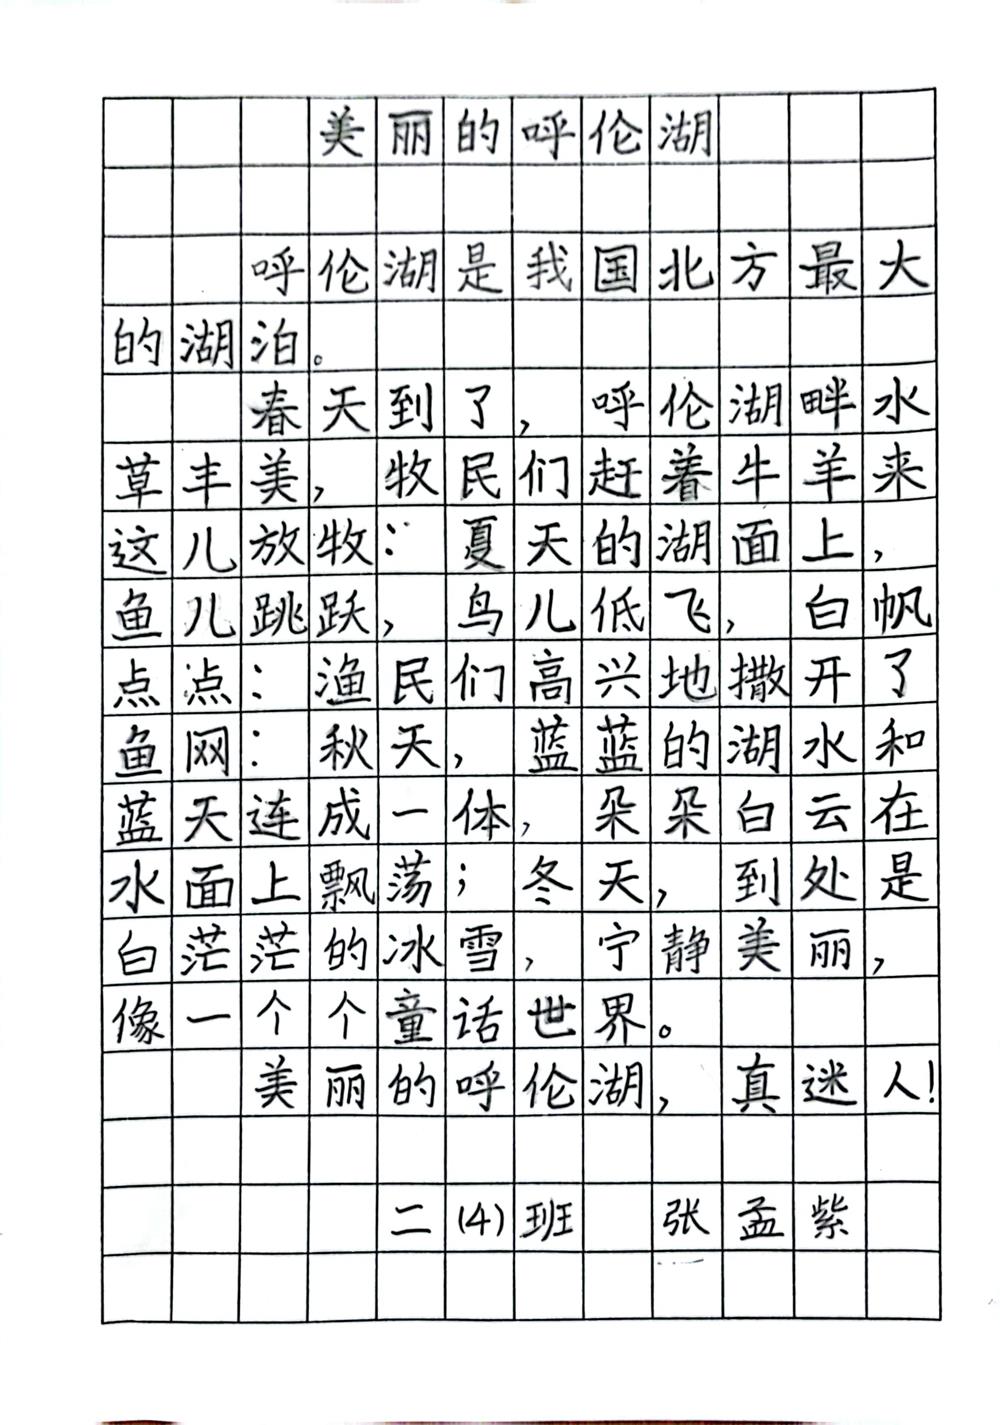 美丽的呼伦湖
呼伦湖是我国北方最大
的湖泊。
春天到了，呼伦湖畔水
草丰美，牧民们赶着牛羊来
这儿放牧：夏天的湖面上，
鱼儿跳跃，鸟儿低飞，白帆
点点：渔民们高兴地撒开了
鱼网：秋天，蓝蓝的湖水和
蓝天连成一体，朵朵白云在
水面上飘荡；冬天，到处是
白茫茫的冰雪，宁静美丽，
像一个个童话世界。
美丽的呼伦湖，真迷人！
二(4)班 张孟紫